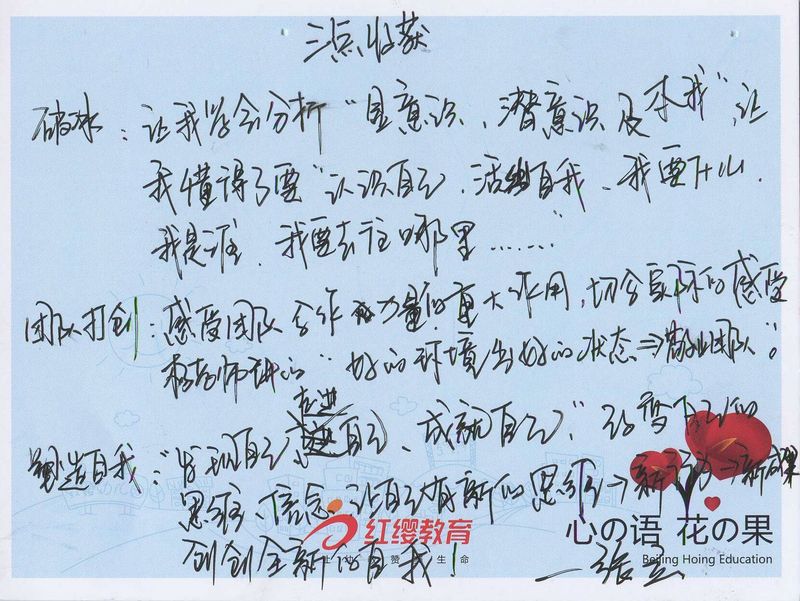 三点收获
破冰：让我学会分析“显意识、潜意识及本我”，让
我懂得了要“认识自己、活出自我、我要什么、
我是谁、我要去往哪里……”
团队打创：感受团队合作的力量的重大作用，切合实际的感受
杨老师讲的“好的环境出好的状态⇒敬业团队”。
走进
塑造自我：“发现自己、自己、成就自己”，改变自己的
思维、信念，让自己有新的思维→新行为→新成果
创创全新的自我！ —张立
红缨教育
心の语 花の果
Beijing Hoing Education